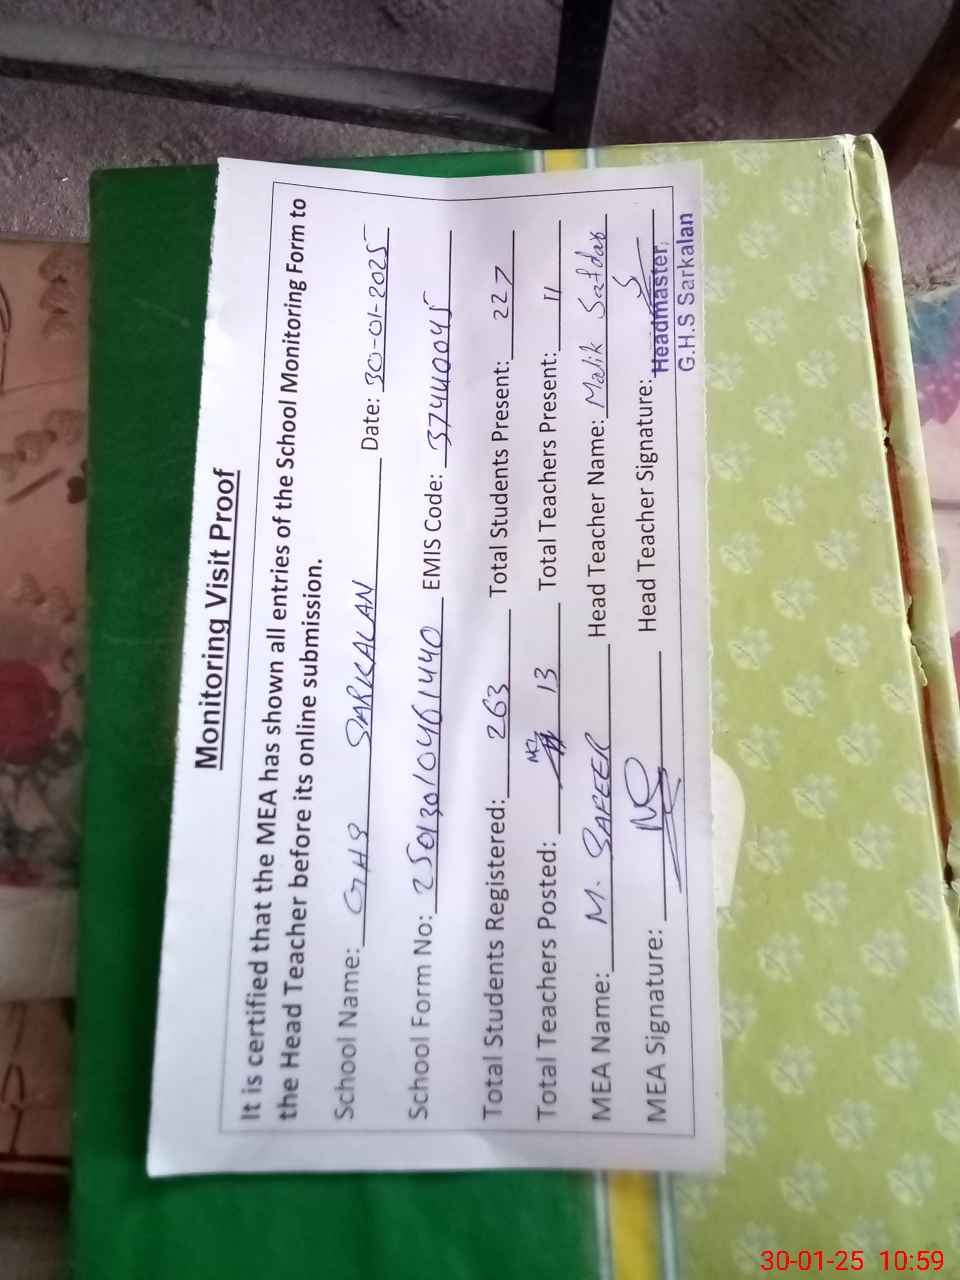 Monitoring Visit Proof
It is certified that the MEA has shown all entries of the School Monitoring Form to
the Head Teacher before its online submission.
School Name: GHS SARKALAN Date: 30-01-2025
School Form No: 25013010461440 EMIS Code: 37440045
Total Students Registered: 263 Total Students Present: 227
Total Teachers Posted: 13 Total Teachers Present: 11
MEA Name: M. SAFEER Head Teacher Name: Malik Safdar
MEA Signature: Head Teacher Signature:
Headmaster
G.H.S Sarkalan
30-01-25 10:59